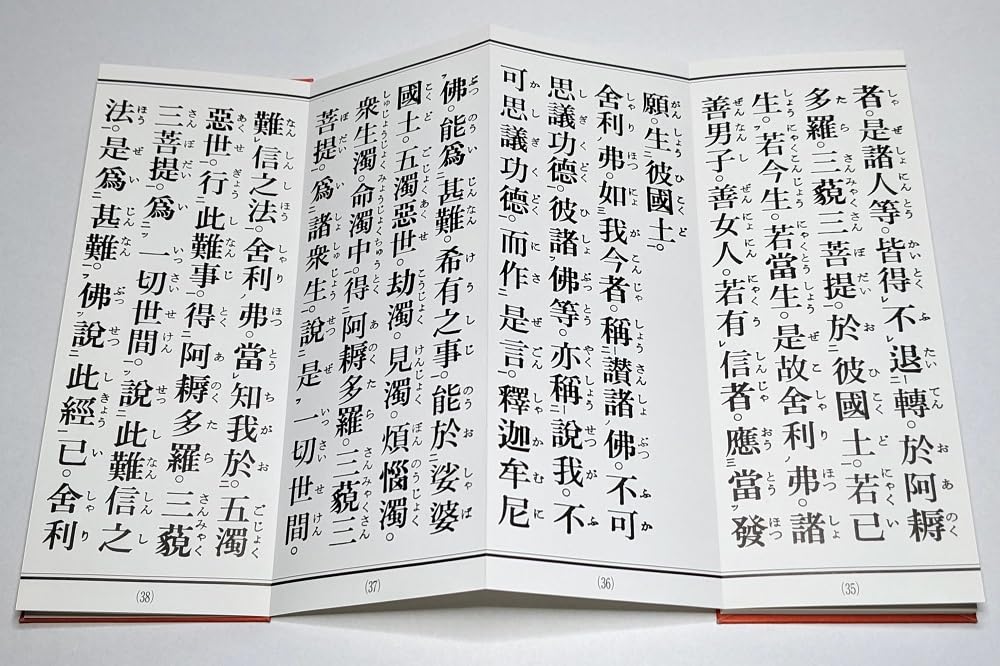 者。是諸人等。皆得不退轉。於阿耨
多羅。三藐三菩提。於彼國土。若已
生。若今生。若當生。是故舍利弗。諸
善男子。善女人。若有信者。應當發
(35)
願。生彼國土。
舍利弗。如我今者。稱讚諸佛。不可
思議功德。彼諸佛等。亦稱說我。不
可思議功德。而作是言。釋迦牟尼
(36)
佛。能爲甚難。希有之事。能於娑婆
國土。五濁惡世。劫濁。見濁。煩惱濁。
衆生濁。命濁中。得阿耨多羅。三藐三
菩提。爲諸衆生。說是一切世間。
(37)
難信之法。舍利弗。當知我於。五濁
惡世。行此難事。得阿耨多羅。三藐
三菩提。爲一切世間。說此難信之
法。是爲甚難。佛說此經已。舍利
(38)